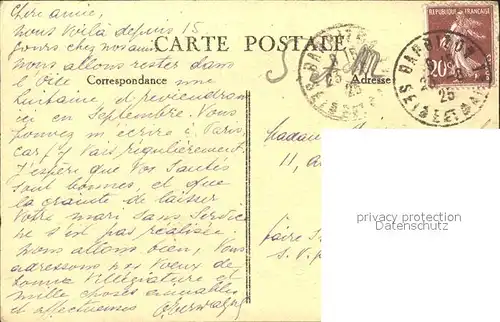 Chère amie,
Nous voilà depuis 15
jours chez nos amis
CARTE POSTALE
nous allons rester dans
l'Oise une
Correspondance
Adresse
RÉPUBLIQUE FRANÇAISE
20c
BARBIZON
25
SEINE-ET-M
BARBIZON
25
SEINE-ET-M
huitaine & reviendrons
ici en Septembre. Vous
pouvez m'écrire à Paris,
car j'y vais régulièrement.
J'espère que vos santés
sont bonnes, et que
la crainte de laisser
votre mari sans service
ne s'est pas réalisée.
Nous allons bien, vous
adressons nos vœux de
bonne villégiature et
mille choses aimables
et affectueuses
Madame
11, A
faire S
S. V. P
privacy protection
Datenschutz